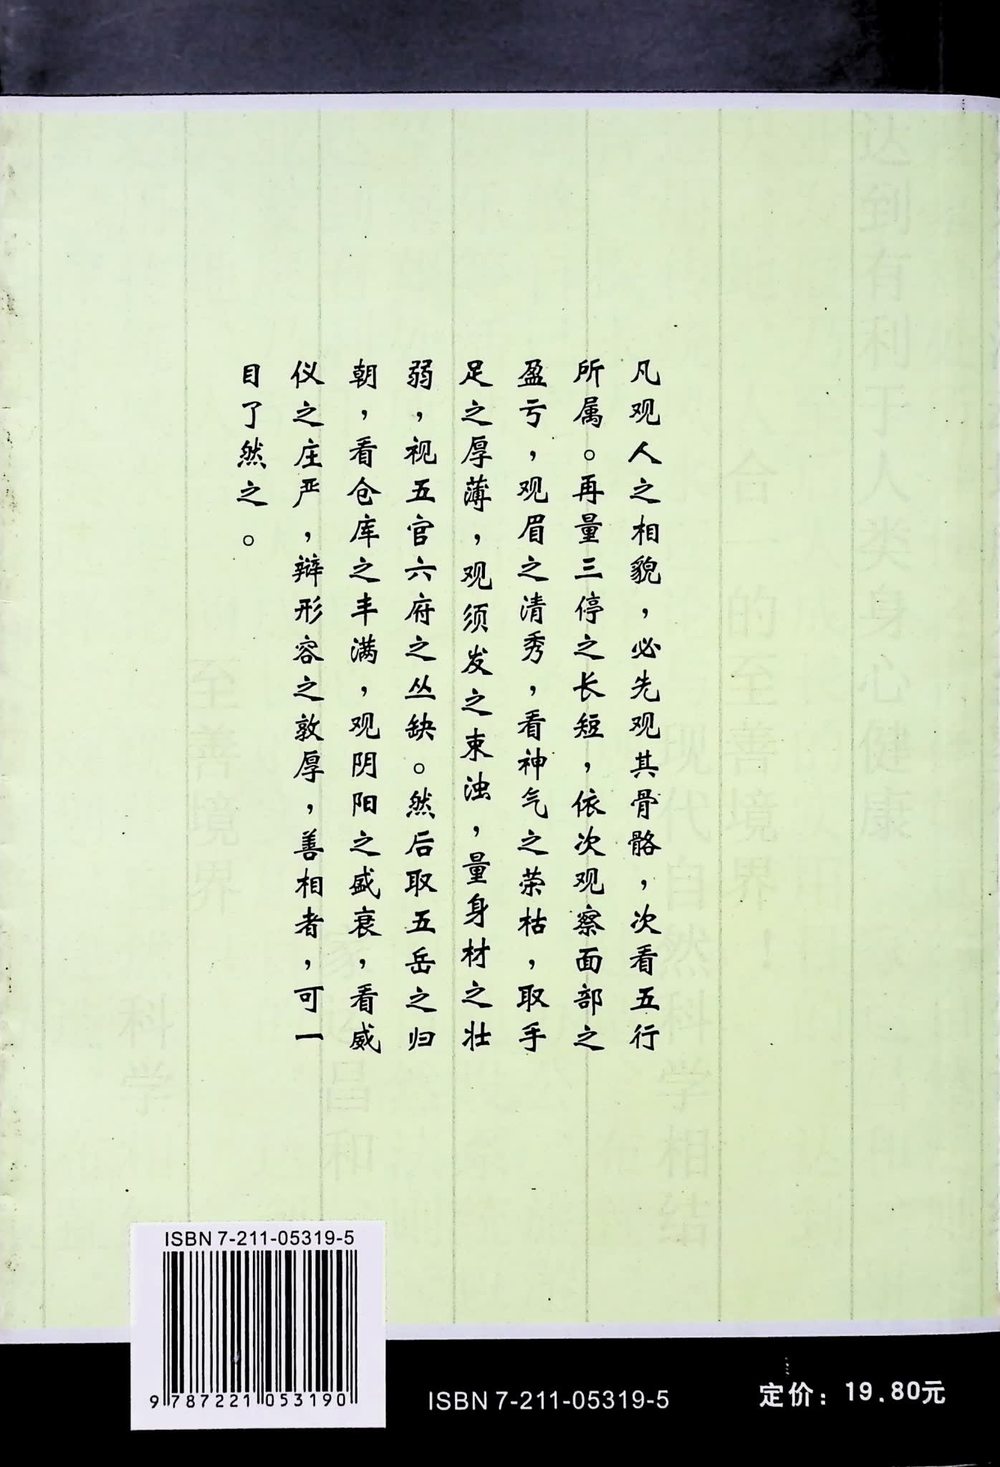 凡观人之相貌，必先观其骨骼，次看五行
所属。再量三停之长短，依次观察面部之
盈亏，观眉之清秀，看神气之荣枯，取手
足之厚薄，观须发之束浊，量身材之壮
弱，视五官六府之丛缺。然后取五岳之归
朝，看仓库之丰满，观阴阳之盛衰，看威
仪之庄严，辩形容之敦厚，善相者，可一
目了然之。
ISBN 7-211-05319-5
9 787221 053190
ISBN 7-211-05319-5
定价：19.80元